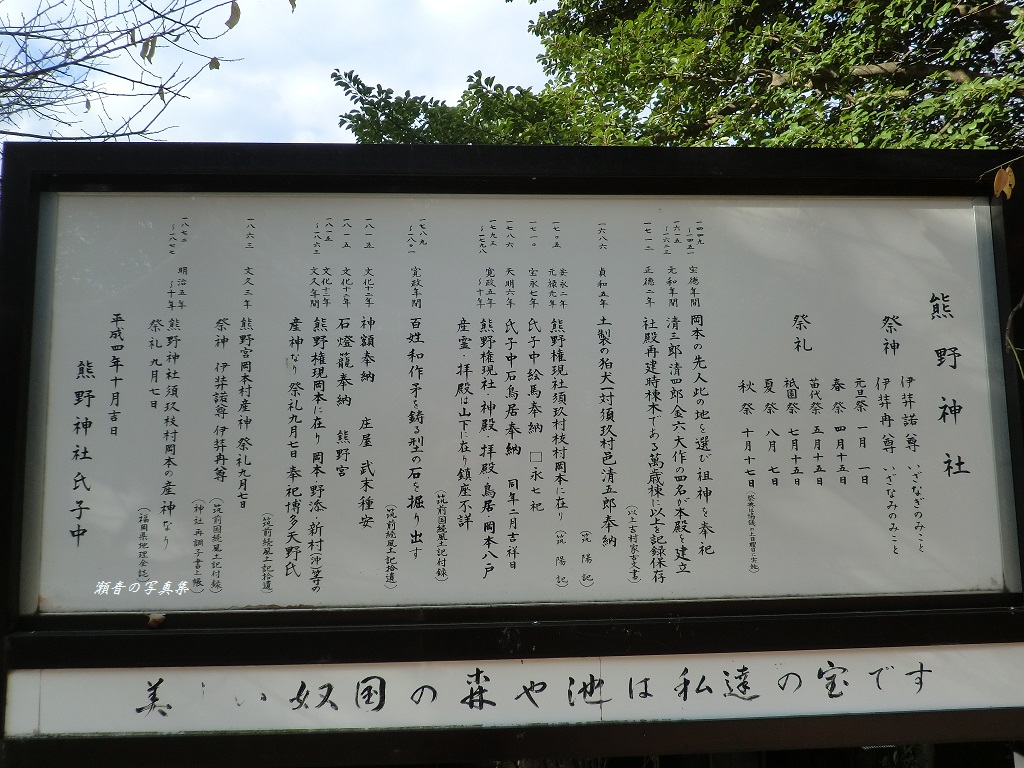 熊野神社
祭神 伊弉諾尊 いざなぎのみこと
伊弉冉尊 いざなみのみこと
祭礼
元旦祭 一月一日
春祭 四月十五日
苗代祭 五月十五日
祇園祭 七月十五日
夏祭 八月七日
秋祭 十月十七日
一四四九~一四五一 宝徳年間 岡本の先人此の地を選び祖神を奉祀
一六一五~一六二三 元和年間 清三郎清四郎金六大作の四名が本殿を建立
一七一二 正徳二年 社殿再建時棟木である萬歳棟に以上を記録保存
(以上吉村家古文書)
一六八六 貞和五年 土製の狛犬一対須玖村邑清五郎奉納
(筑陽記)
一七〇五 元禄元年 熊野権現社須玖村枝村岡本に在り
一七一〇 宝永七年 氏子中絵馬奉納 □永七祀
一七八六 天明六年 氏子中石鳥居奉納 同年二月吉祥日
一七九三~一七九八 寛政五年~十年 熊野権現社・神殿・拝殿・鳥居岡本八戸
産霊・拝殿は山下に在り鎮座不詳
(筑前国続風土記付録)
一七八九~一八〇一 寛政年間 百姓和作矛を鋳る型の石を掘り出す
(筑前続風土記拾遺)
一八一五 文化十二年 神額奉納 庄屋 武末種安
一八一五 文化十二年 石燈籠奉納 熊野宮
一八一五~一八六三 文化十二~文久年間 熊野権現岡本に在り岡本野添・新村(沖)等の
産神なり 祭礼九月七日 奉祀博多天野氏
(筑前続風土記拾遺)
一八六三 文久三年 熊野宮岡本村産神 祭礼九月七日
(筑前国続風土記付録)
祭神 伊弉諾尊 伊弉冉尊
(神社再調子書上帳)
一八七二~一八七七 明治五年~十年 熊野神社須玖枝村岡本の産神なり
祭礼九月七日
(福岡県地理全誌)
平成四年十月吉日
熊野神社氏子中
瀬音の写真集
美しい奴国の森や池は私達の宝です